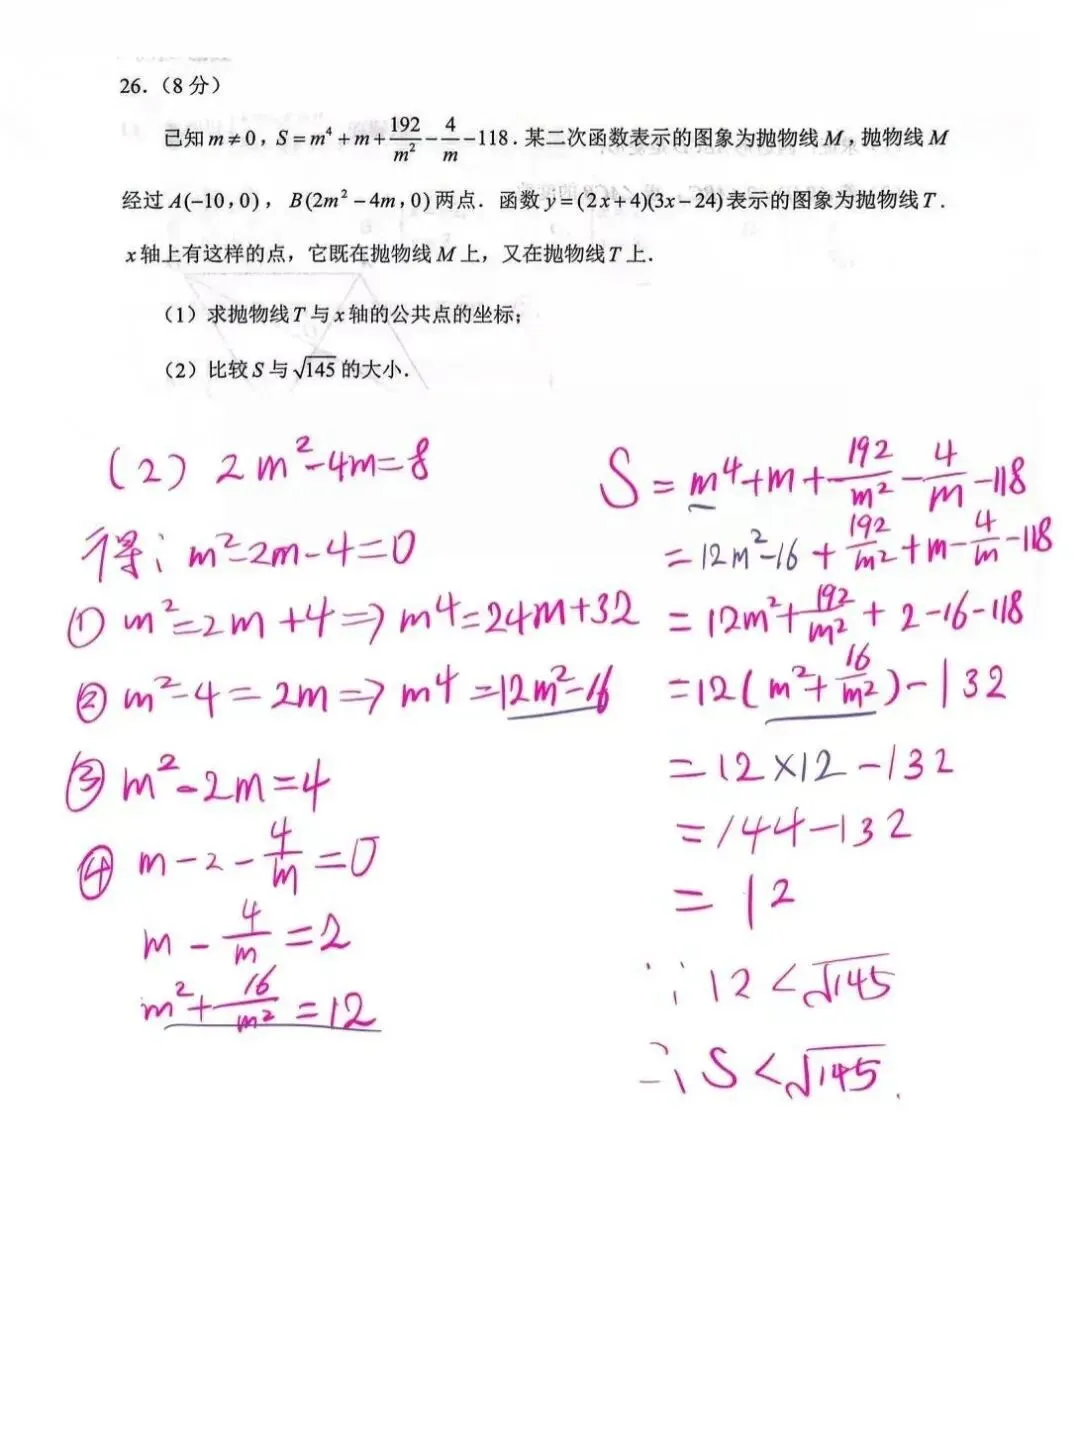 26.（8 分）
已知 m ≠ 0，S = m⁴ + m + 192/m² − 4/m − 118．某二次函数表示的图象为抛物线 M，抛物线 M
经过 A(−10, 0)，B(2m² − 4m, 0) 两点．函数 y = (2x+4)(3x−24) 表示的图象为抛物线 T．
x 轴上有这样的点，它既在抛物线 M 上，又在抛物线 T 上．
（1）求抛物线 T 与 x 轴的公共点的坐标；
（2）比较 S 与 √145 的大小．
(2) 2m²-4m=8
得: m²-2m-4=0
① m²=2m+4 => m⁴=24m+32
② m²-4=2m => m⁴=12m²-16
③ m²-2m=4
④ m-2-4/m=0
m-4/m=2
m²+16/m²=12
S=m⁴+m+192/m²-4/m-118
=12m²-16+192/m²+m-4/m-118
=12m²+192/m²+2-16-118
=12(m²+16/m²)-132
=12×12-132
=144-132
=12
∵12<√145
∴S<√145.